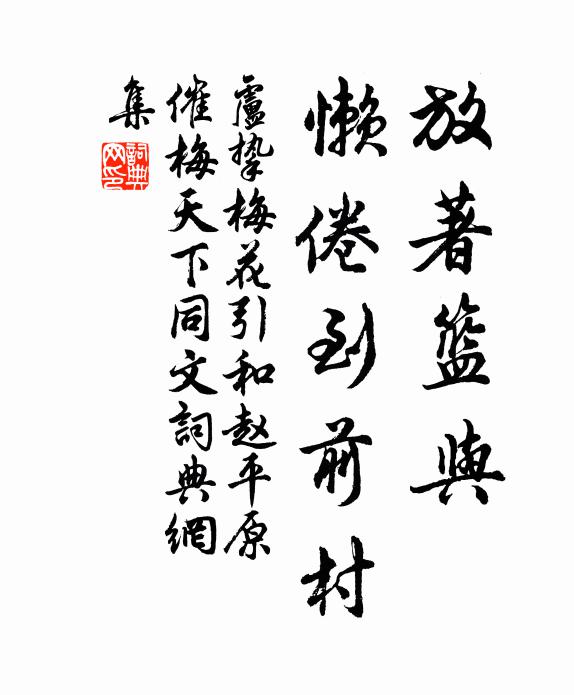 放著籃輿
懶倦到前村
盧摯梅花引和赵平原
催梅天下同文詞典網
集
詞典
网印